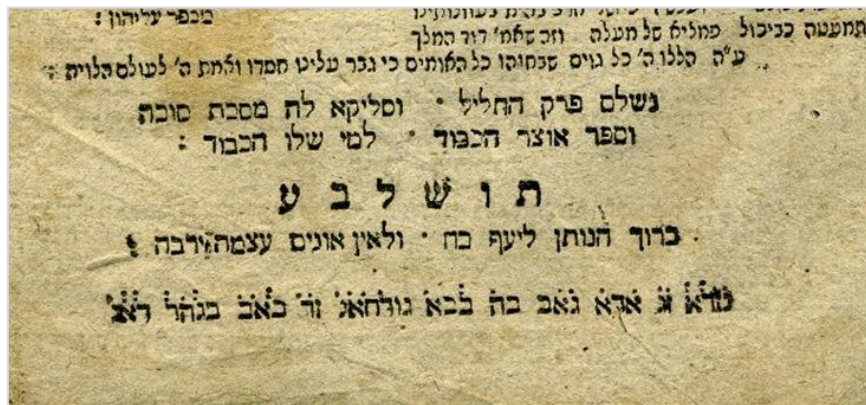 מכפר עליהון :
תמעטה כביכול פמליא של מעלה וזה שאמ' דוד המלך
ע"ה הללו ה' כל גוים שבחוהו כל האומים כי גבר עלינו חסדו ואמת ה' לעולם הלויה :
נשלם פרק החליל · וסליקא לה מסכת סוכה
וספר אוצר הכבוד · למי שלו הכבוד :
ת ו ש ל ב ע
ברוך הנותן ליעף כח · ולאין אונים עצמה ירבה :
אדא גאב בה בבא